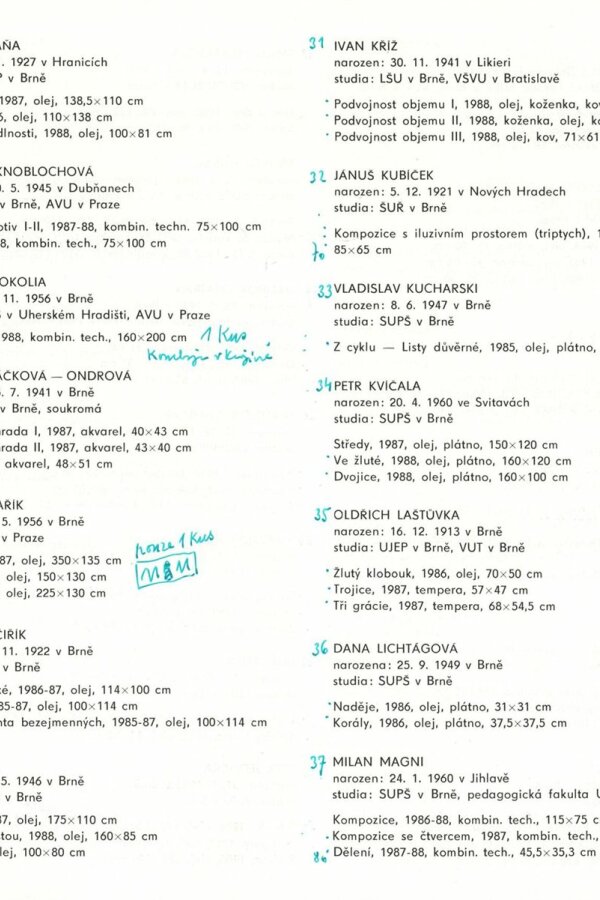 AŇA
. 1927 v Hranicích
P v Brně
1987, olej, 138,5×110 cm
, olej, 110×138 cm
dlnosti, 1988, olej, 100×81 cm
KNOBLOCHOVÁ
. 5. 1945 v Dubňanech
v Brně, AVU v Praze
otiv I-II, 1987-88, kombin. techn. 75×100 cm
8, kombin. tech., 75×100 cm
OKOLIA
11. 1956 v Brně
v Uherském Hradišti, AVU v Praze
988, kombin. tech., 160×200 cm 1 Kus
ÁČKOVÁ — ONDROVÁ
. 7. 1941 v Brně
v Brně, soukromá
hrada I, 1987, akvarel, 40×43 cm
hrada II, 1987, akvarel, 43×40 cm
akvarel, 48×51 cm
AŘÍK
5. 1956 v Brně
v Praze
pouze 1 Kus
87, olej, 350×135 cm
olej, 150×130 cm
olej, 225×130 cm
ČIŘÍK
11. 1922 v Brně
v Brně
é, 1986-87, olej, 114×100 cm
85-87, olej, 100×114 cm
nta bezejmenných, 1985-87, olej, 100×114 cm
5. 1946 v Brně
v Brně
87, olej, 175×110 cm
tou, 1988, olej, 160×85 cm
lej, 100×80 cm
31 IVAN KŘÍŽ
narozen: 30. 11. 1941 v Likieri
studia: LŠU v Brně, VŠVU v Bratislavě
Podvojnost objemu I, 1988, olej, koženka, kov
Podvojnost objemu II, 1988, koženka, olej, k
Podvojnost objemu III, 1988, olej, kov, 71×61
32 JÁNUŠ KUBÍČEK
narozen: 5. 12. 1921 v Nových Hradech
studia: ŠUŘ v Brně
Kompozice s iluzivním prostorem (triptych), 1
70 85×65 cm
33 VLADISLAV KUCHARSKI
narozen: 8. 6. 1947 v Brně
studia: SUPŠ v Brně
Z cyklu — Listy důvěrné, 1985, olej, plátno,
34 PETR KVÍČALA
narozen: 20. 4. 1960 ve Svitavách
studia: SUPŠ v Brně
Středy, 1987, olej, plátno, 150×120 cm
Ve žluté, 1988, olej, plátno, 160×120 cm
Dvojice, 1988, olej, plátno, 160×100 cm
35 OLDŘICH LAŠTŮVKA
narozen: 16. 12. 1913 v Brně
studia: UJEP v Brně, VUT v Brně
Žlutý klobouk, 1986, olej, 70×50 cm
Trojice, 1987, tempera, 57×47 cm
Tři grácie, 1987, tempera, 68×54,5 cm
36 DANA LICHTÁGOVÁ
narozena: 25. 9. 1949 v Brně
studia: SUPŠ v Brně
Naděje, 1986, olej, plátno, 31×31 cm
Korály, 1986, olej, plátno, 37,5×37,5 cm
37 MILAN MAGNI
narozen: 24. 1. 1960 v Jihlavě
studia: SUPŠ v Brně, pedagogická fakulta U
Kompozice, 1986-88, kombin. tech., 115×75 c
Kompozice se čtvercem, 1987, kombin. tech.,
Dělení, 1987-88, kombin. tech., 45,5×35,3 cm